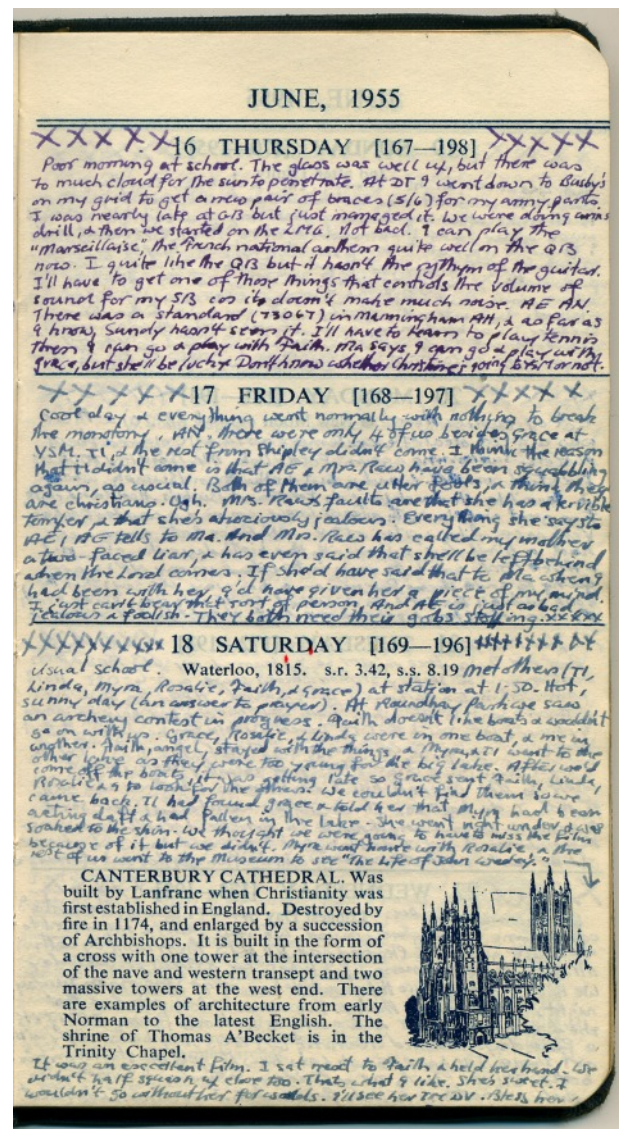 JUNE, 1955
XXXXX 16 THURSDAY [167—198] XXXXX
Poor morning at school. The glass was well up, but there was
to much cloud for the sun to penetrate. At DT I went down to Busby's
on my grid to get a new pair of braces (5/6) for my army pants.
I was nearly late at GB but just managed it. We were doing arms
drill, & then we started on the LMG. Not bad. I can play the
"Marseillaise", the French national anthem quite well on the QB
now. I quite like the QB but it hasn't the rythym of the guitar.
I'll have to get one of those things that controls the volume of
sound for my SB cos it doesn't make much noise. AE AN.
There was a standard (73067) in Manningham AH, & as far as
I know, Sundy hasn't seen it. I'll have to learn to play tennis
then I can go & play with Faith. Ma says I can go & play with
Grace, but she'll be lucky. Don't know whether Christine's going by SM or not.
XXXXXX 17 FRIDAY [168—197] XXXXX
Cool day & everything went normally with nothing to break
the monotony. AN. There were only 4 of us besides Grace at
YSM. TI, & the rest from Shipley didn't come. I think the reason
that TI didn't come is that AE & Mrs. Raw have been squabbling
again, as usual. Both of them are utter fools, & think they
are christians. Ugh. Mrs. Raws faults are that she has a terrible
temper, & that she's atrociously jealous. Everything she says to
AE, AE tells to Ma. And Mrs. Raw has called my mother
a two-faced liar, & has even said that she'll be left behind
when the Lord comes. If she'd have said that to Ma when I
had been with her, I'd have given her a piece of my mind.
I just can't bear that sort of person. And AE is just as bad
jealous & foolish. They both need their gobs stuffing. xxxxx
XXXXXXXX 18 SATURDAY [169—196] XXXXXXXX
Usual school. Waterloo, 1815. s.r. 3.42, s.s. 8.19 Met others (TI,
Linda, Myra, Rosalie, Faith, & Grace) at station at 1-50. Hot,
sunny day (an answer to prayer). At Roundhay Park we saw
an archery contest in progress. Faith doesn't like boats & wouldn't
go on with us. Grace, Rosalie, & Linda were in one boat, & me in
another. Faith, angel, stayed with the things, & Myra & TI went to the
other lake as they were too young for the big lake. After we'd
come off the boats, it was getting late so Grace sent Faith, Linda,
Rosalie & I to look for the others. We couldn't find them so we
came back. TI had found Grace & told her that Myra had been
acting daft & had fallen in the lake. She went right under & was
soaked to the skin. We thought we were going to have to miss the film
because of it but we didn't. Myra went home with Rosalie, & the
rest of us went to the Museum to see "The Life of John Wesley."
CANTERBURY CATHEDRAL. Was
built by Lanfranc when Christianity was
first established in England. Destroyed by
fire in 1174, and enlarged by a succession
of Archbishops. It is built in the form of
a cross with one tower at the intersection
of the nave and western transept and two
massive towers at the west end. There
are examples of architecture from early
Norman to the latest English. The
shrine of Thomas A'Becket is in the
Trinity Chapel.
It was an excellent film. I sat next to Faith & held her hand. We
didn't half squash up close too. Thats what I like. She's sweet. I
wouldn't go without her for worlds. I'll see her DV. Bless her.